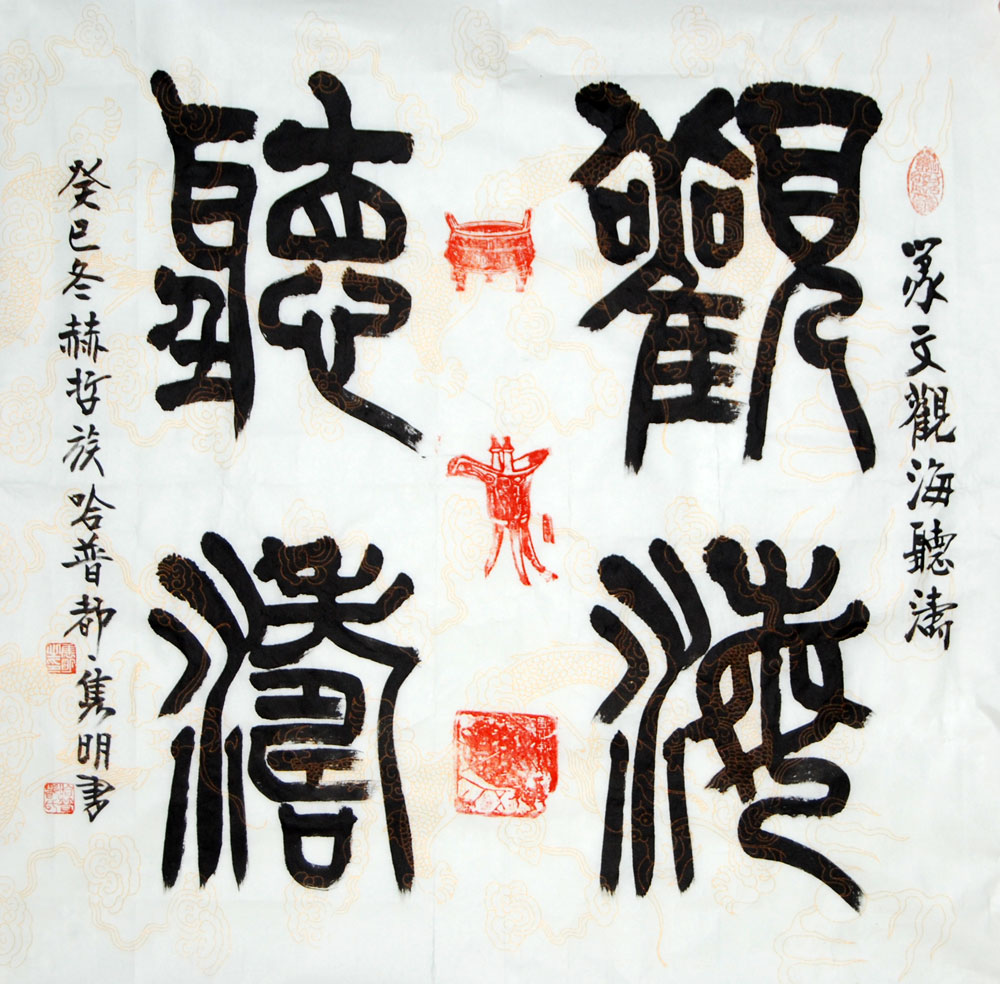 篆文觀海聽濤
觀海
聽濤
癸巳冬赫哲族哈普都·隽明书